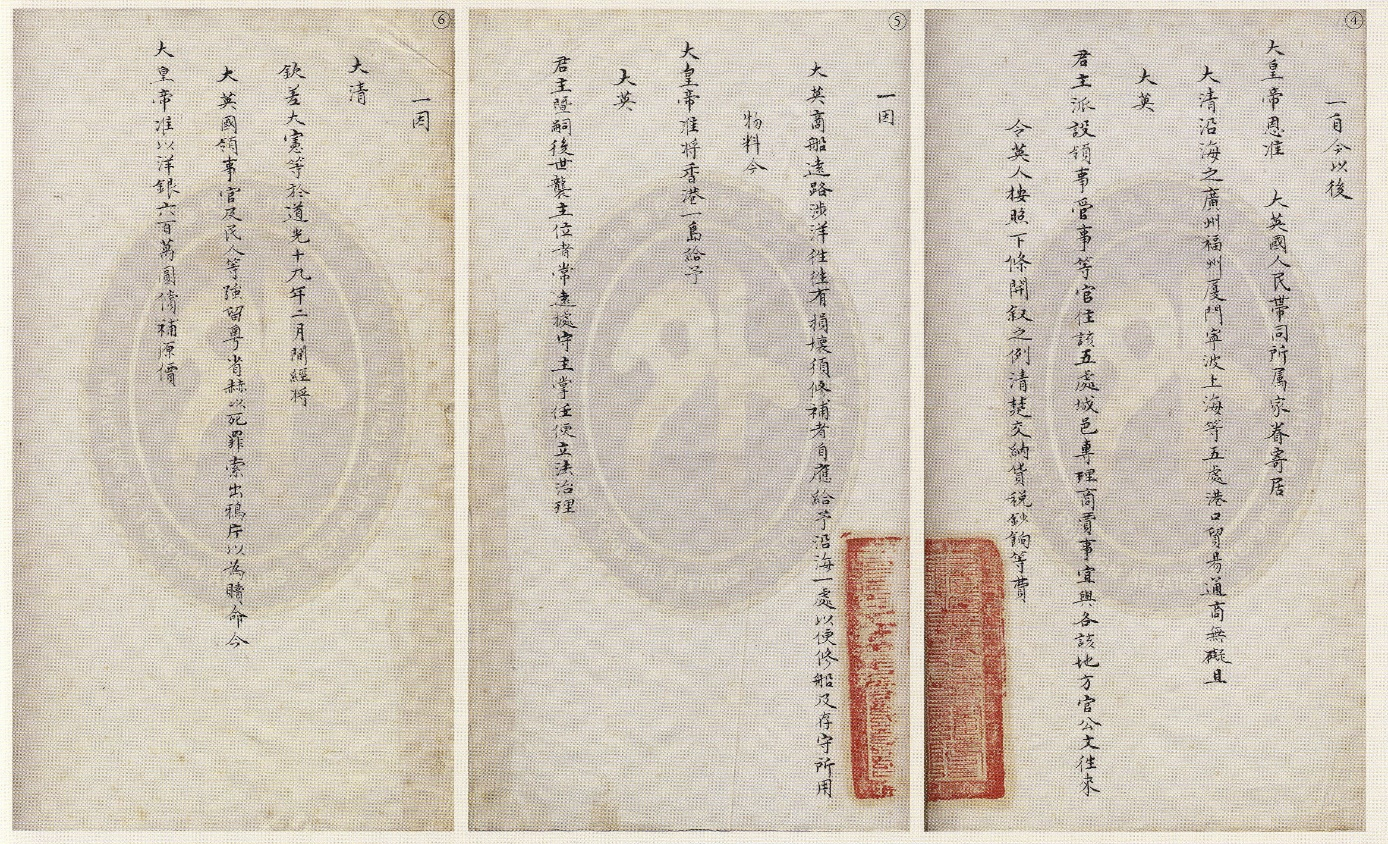 ④
一自今以後
大皇帝恩准 大英國人民帶同所屬家眷寄居
大清沿海之廣州福州厦門寧波上海等五處港口貿易通商無礙且
大英
君主派設領事管事等官住該五處城邑專理商賈事宜與各該地方官公文徃來
令英人按照下條開叙之例清楚交納貨税鈔餉等費
⑤
一因
大英商船遠路涉洋徃徃有損壞須修補者自應給予沿海一處以便修船及存守所用
物料今
大皇帝准將香港一島給予
大英
君主暨嗣後世襲主位者常遠據守主掌任便立法治理
⑥
一因
大清
欽差大憲等於道光十九年二月間經將
大英國領事官及民人等強留粵省赫以死罪索出鴉片以為贖命今
大皇帝准以洋銀六百萬圓償補原價